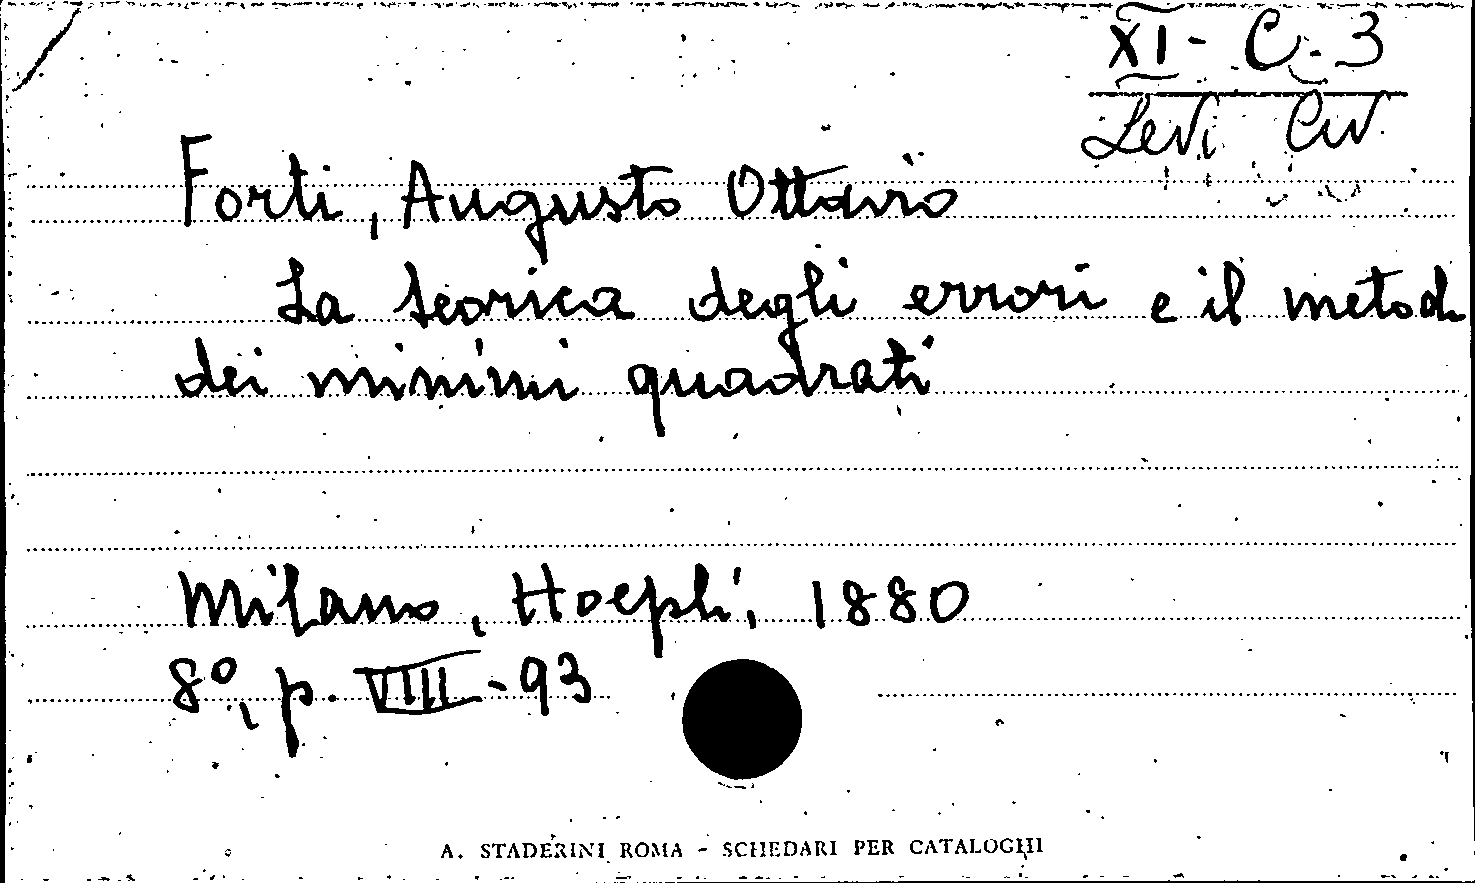 XI - C - 3
Levi Civ
Forti, Augusto Ottavio
La teorica degli errori e il metodo
dei minimi quadrati
Milano, Hoepli, 1880
8º, p. VIII - 93
A. STADERINI ROMA - SCHEDARI PER CATALOGHI